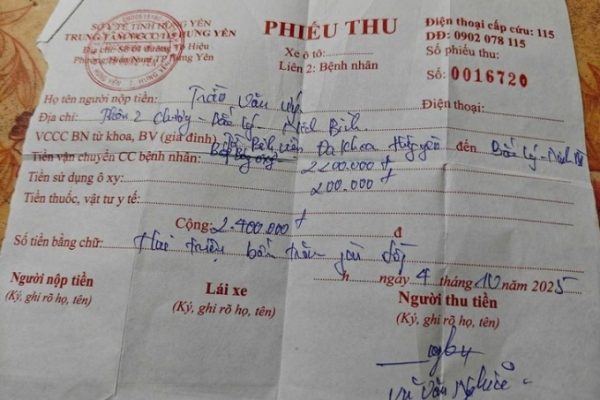 SỞ Y TẾ TỈNH HƯNG YÊN
TRUNG TÂM VCCC 115 HƯNG YÊN
Địa chỉ: Số 01 đường Tô Hiệu
Phường Hiến Nam, TP Hưng Yên
PHIẾU THU
Xe ô tô:
Liên 2: Bệnh nhân
Điện thoại cấp cứu: 115
DĐ: 0902 078 115
Số phiếu thu:
Số: 0016720
Họ tên người nộp tiền: Trần Văn Điện thoại:
Địa chỉ: Thôn 2 - Bắc Lý - Ninh Bình
VCCC BN từ khoa, BV (gia đình) Bệnh viện Đa khoa Hưng Yên đến Bắc Lý - Ninh
Tiền vận chuyển CC bệnh nhân: 2200.000 đ
Tiền sử dụng ô xy: 200.000 đ
Tiền thuốc, vật tư y tế:
Cộng: 2.400.000 đ đ
Số tiền bằng chữ: Hai triệu bốn trăm đồng
h ngày 4 tháng 10 năm 2025
Người nộp tiền Lái xe Người thu tiền
(Ký, ghi rõ họ, tên) (Ký, ghi rõ họ, tên) (Ký, ghi rõ họ, tên)
Văn